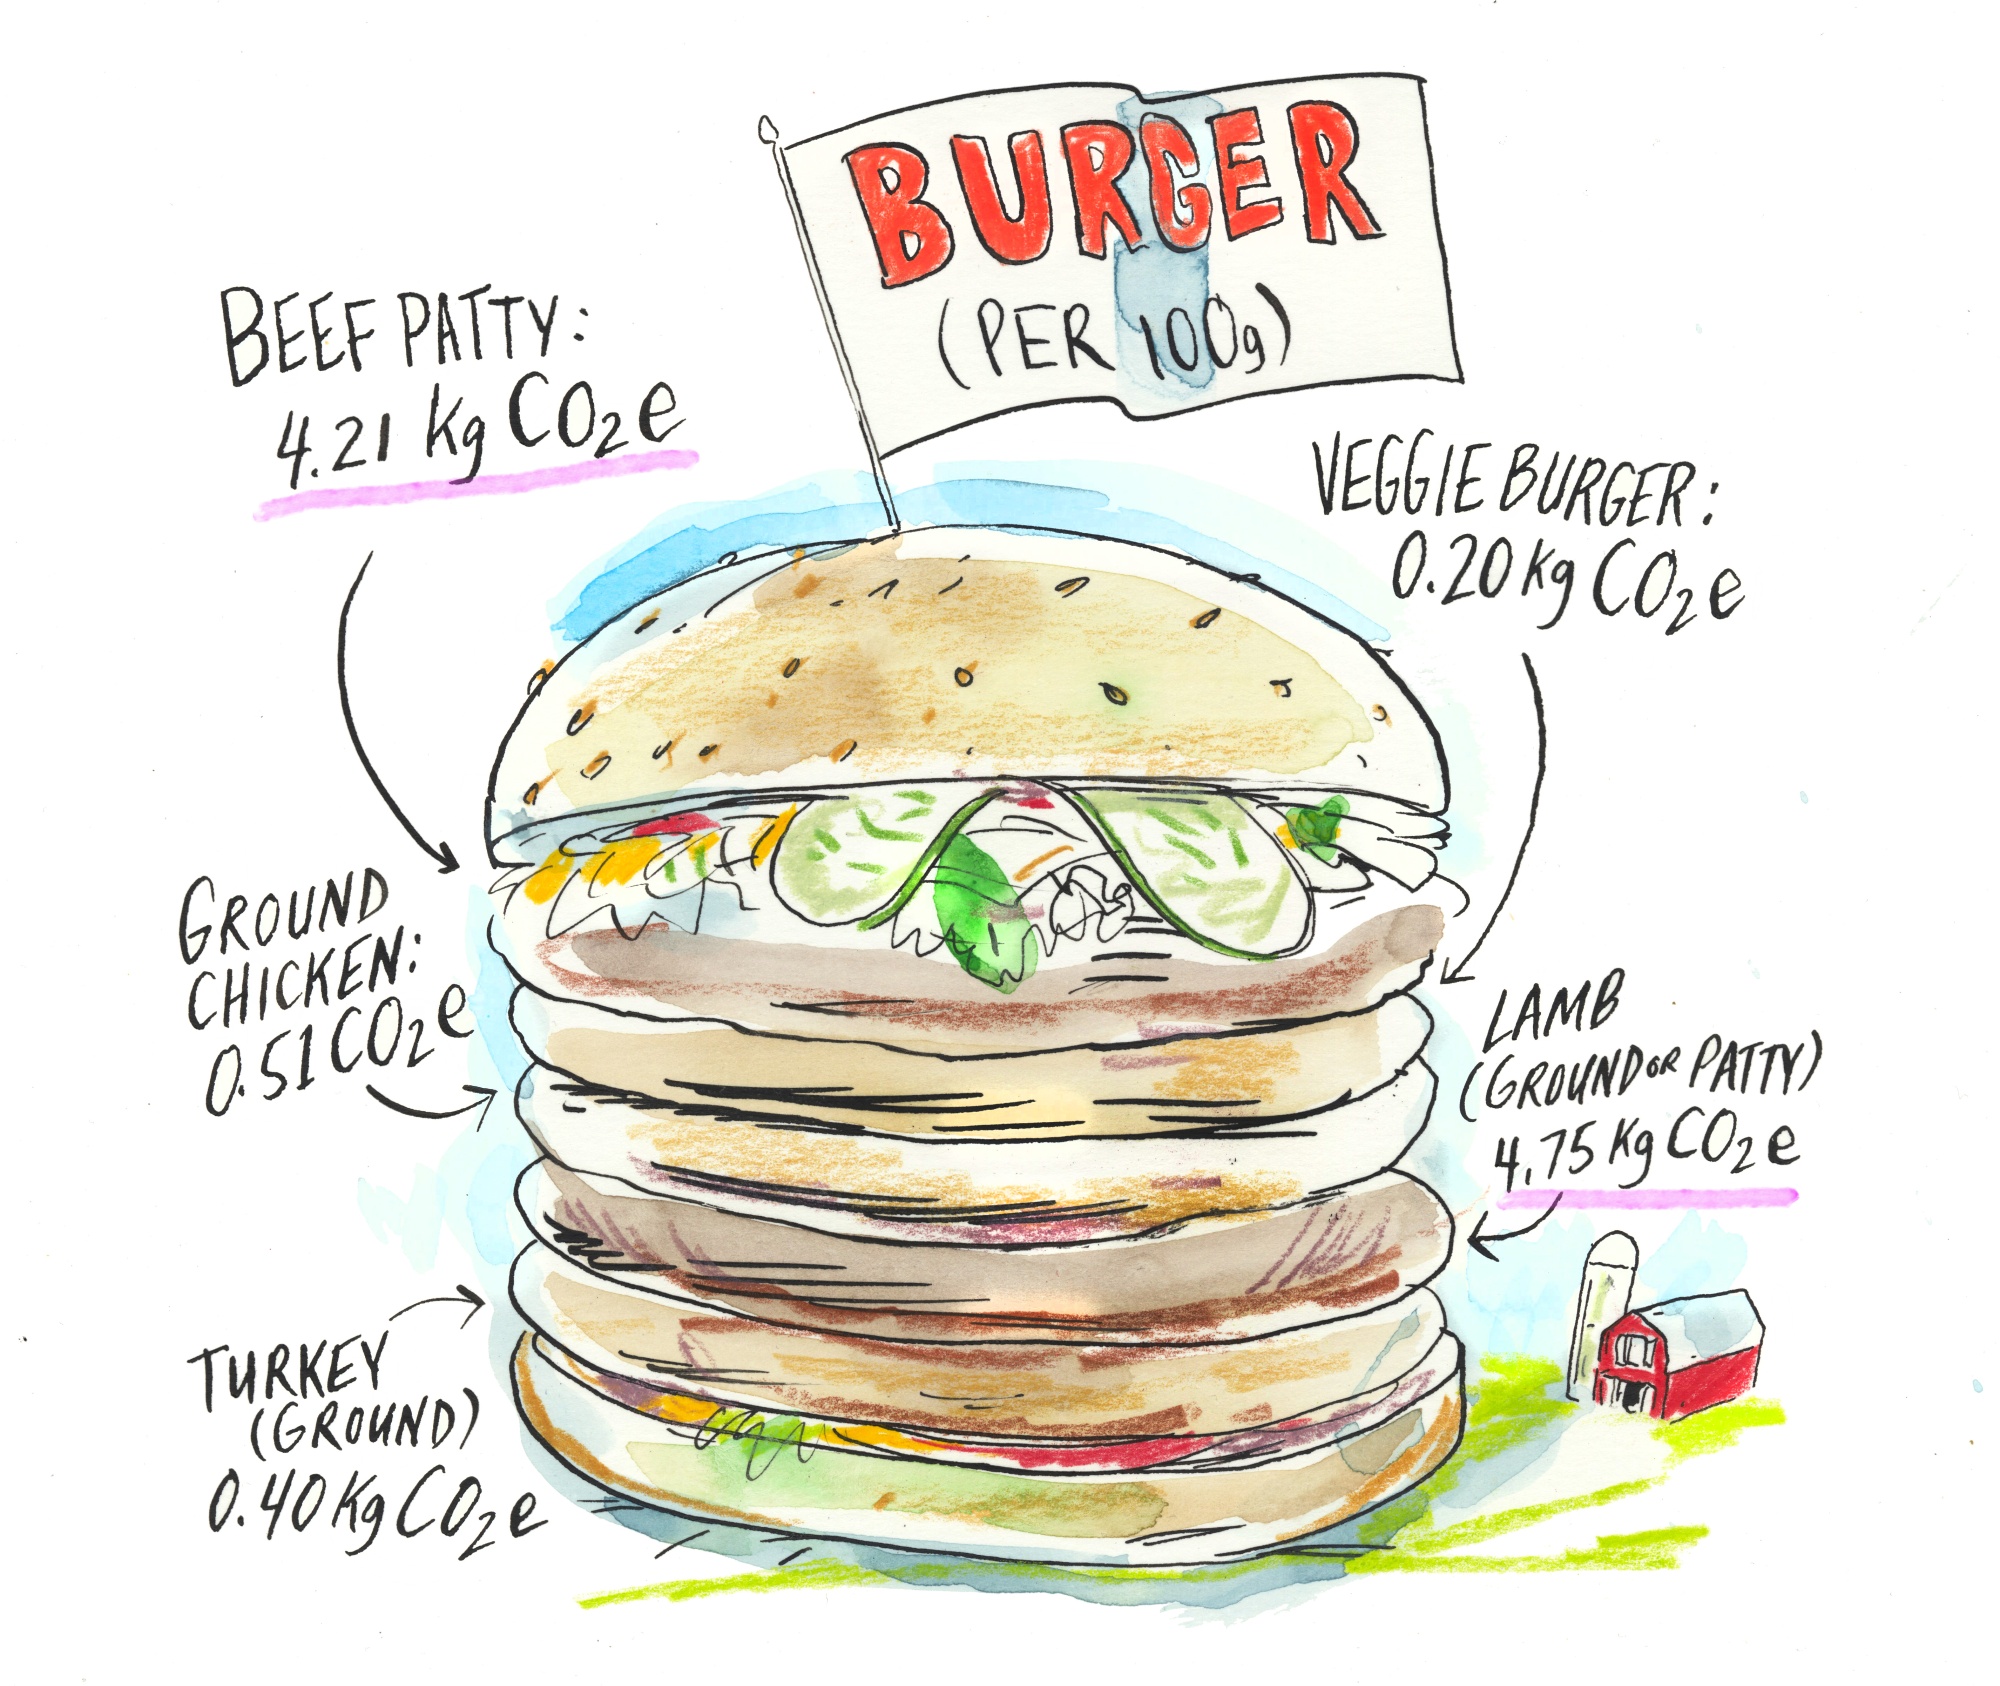 BURGER
(PER 100g)
BEEF PATTY:
4.21 kg CO₂e
VEGGIE BURGER:
0.20 kg CO₂e
GROUND
CHICKEN:
0.51 CO₂e
LAMB
(GROUND OR PATTY)
4.75 kg CO₂e
TURKEY
(GROUND)
0.40 kg CO₂e